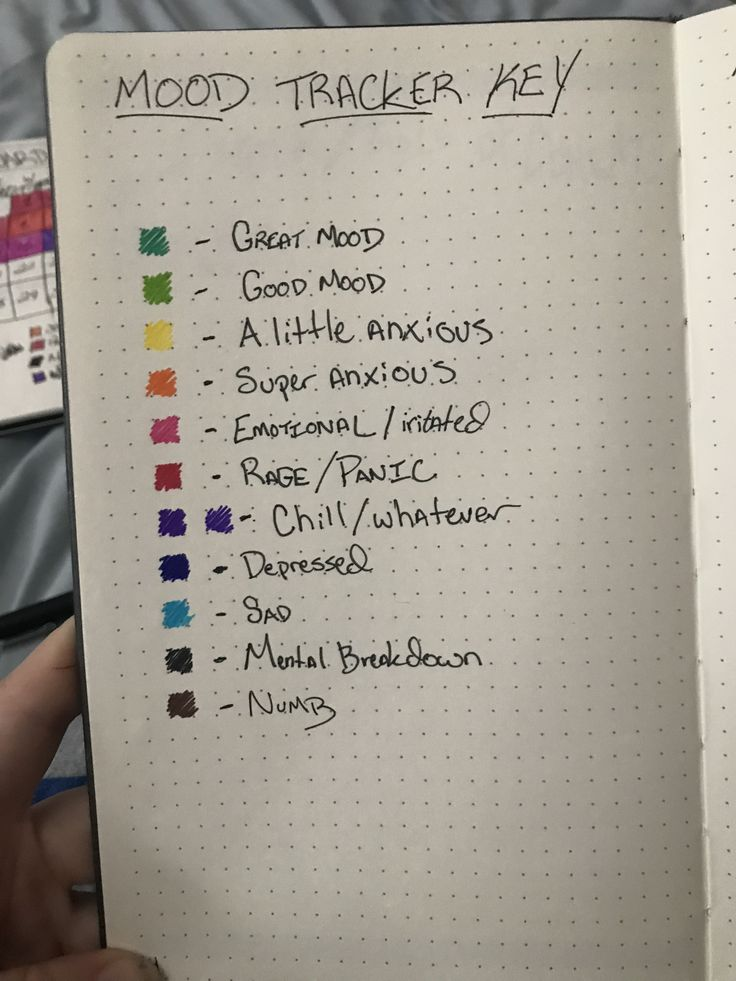 MOOD TRACKER KEY
- GREAT MOOD
- GOOD MOOD
- A little ANXIOUS
- Super ANXIOUS
- EMOTIONAL / iritated
- RAGE / PANIC
- Chill / whatever
- Depressed
- SAD
- Mental Breakdown
- NUMB